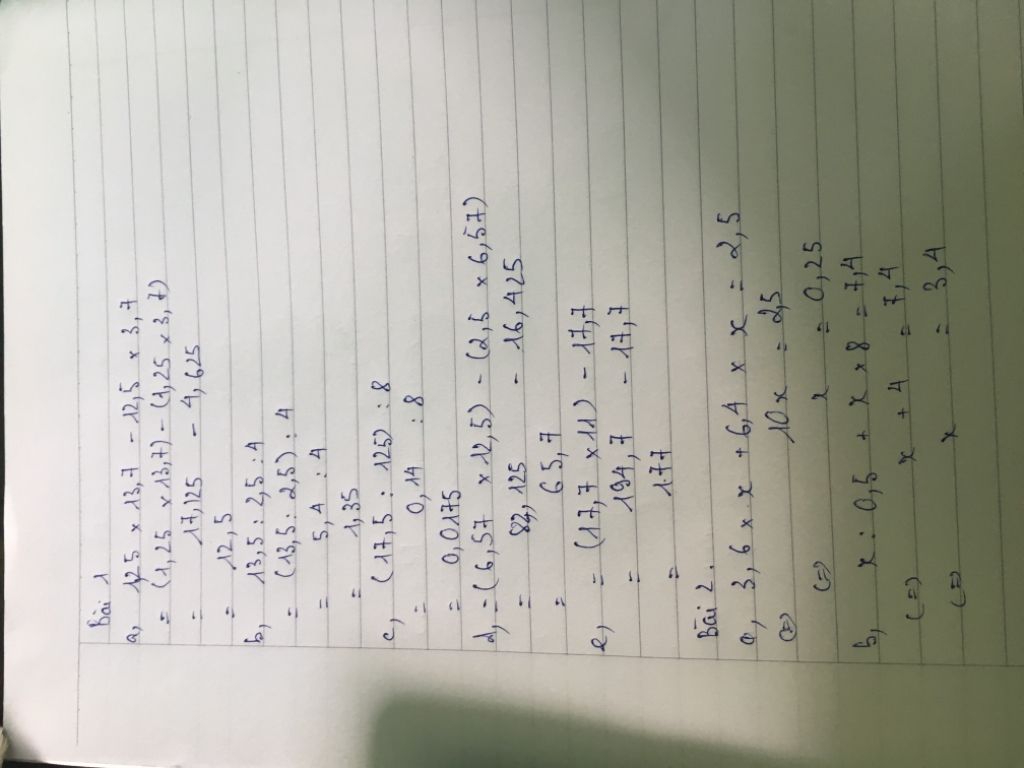 Bài 1
a, 1,25 x 13,7 - 12,5 x 3,7
= (1,25 x 13,7) - (1,25 x 3,7)
= 17,125 - 4,625
= 12,5
b, 13,5 : 2,5 : 4
= (13,5 : 2,5) : 4
= 5,4 : 4
= 1,35
c, (17,5 : 125) : 8
= 0,14 : 8
= 0,0175
d, = (6,57 x 12,5) - (2,5 x 6,57)
= 82,125 - 16,425
= 65,7
e, = (17,7 x 11) - 17,7
= 194,7 - 17,7
= 177
Bài 2.
a, 3,6 x x + 6,4 x x = 2,5
(=) 10x = 2,5
(=) x = 0,25
b, x : 0,5 + x x 8 = 7,4
(=) x + 4 = 7,4
(=) x = 3,4